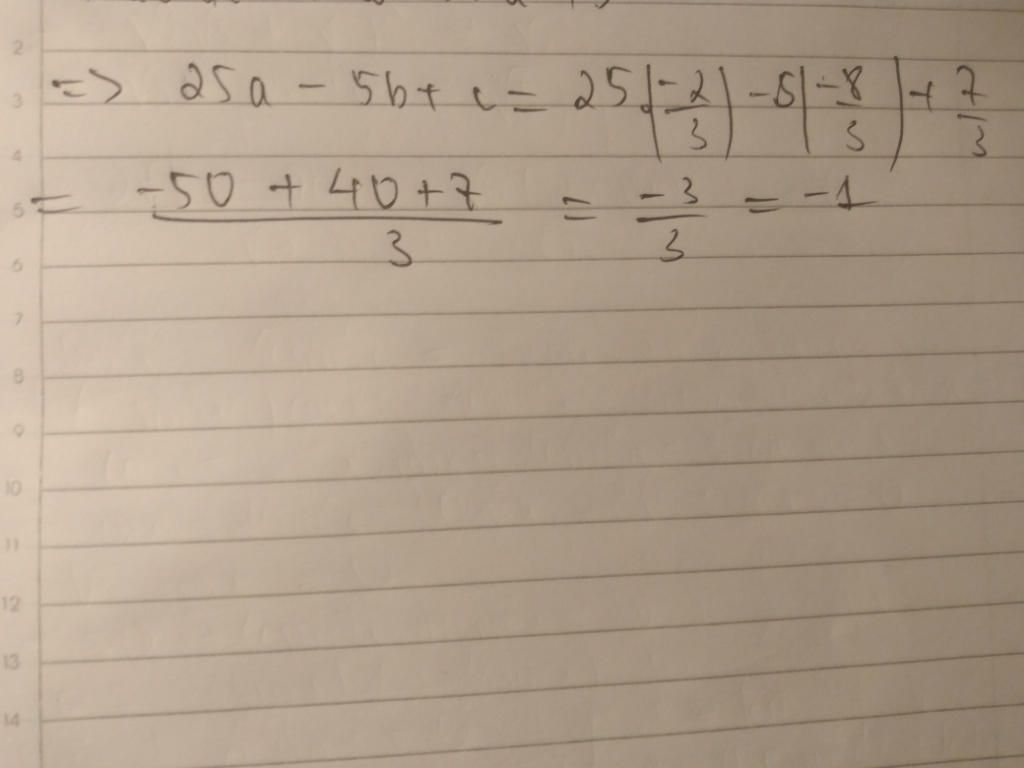 => 25a - 5b + c = 25.(-2/3) - 5(-8/3) + 7/3
= (-50 + 40 + 7)/3 = -3/3 = -1
2
3
4
5
6
7
8
9
10
11
12
13
14